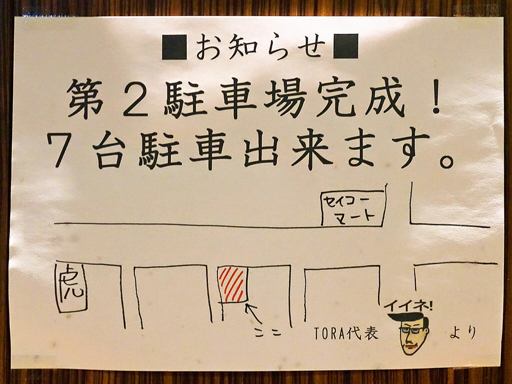 ■お知らせ■
第２駐車場完成！
７台駐車出来ます。
セイコー
マート
虎
ここ
イイネ!
TORA代表
より